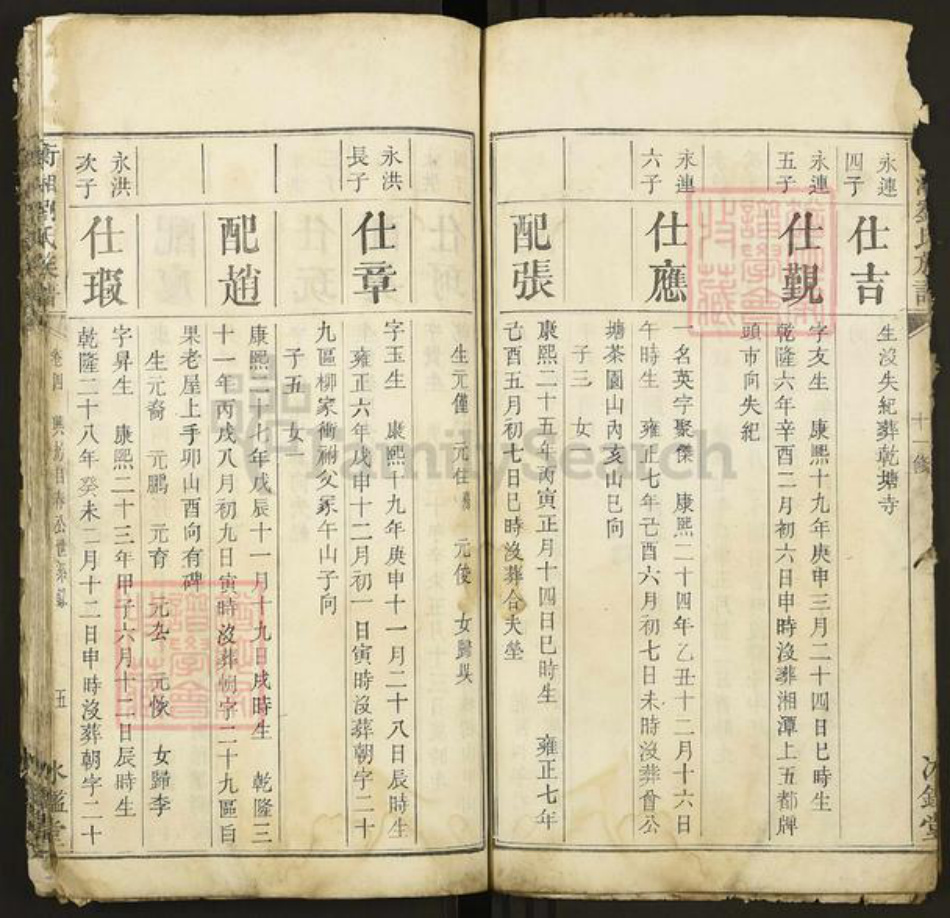 永連
四子
仕吉
生沒失紀葬乾塘寺
永連
五子
仕觐
字友生 康熙十九年庚申三月二十四日巳時生
乾隆六年辛酉二月初六日申時沒葬湘潭上五都牌
頭市向失紀
永連
六子
仕應
一名英字聚傑 康熙二十四年乙丑十二月十六日
午時生 雍正七年己酉六月初七日未時沒葬曾公
塘茶園山內亥山巳向
子三 女一
配張
康熙二十五年丙寅正月十四日巳時生 雍正七年
己酉五月初七日巳時沒葬合夫塋
生元僅 元仕 元俊 女歸吳
永洪
長子
仕章
字玉生 康熙十九年庚申十一月二十八日辰時生
雍正六年戊申十二月初一日寅時沒葬朝字二十
九區柳家衝祔父冢午山子向
子五 女一
配趙
康熙二十七年戊辰十一月十九日戌時生 乾隆三
十一年丙戌八月初九日寅時沒葬朝字二十九區白
果老屋上手卯山酉向有碑
生元裔 元鵬 元育 元 元恢 女歸李
永洪
次子
仕瑕
字昇生 康熙二十三年甲子六月十二日辰時生
乾隆二十八年癸未二月十二日申時沒葬朝字二十
衡湘劉氏族譜
卷四
五
氷鑑堂
FamilySearch